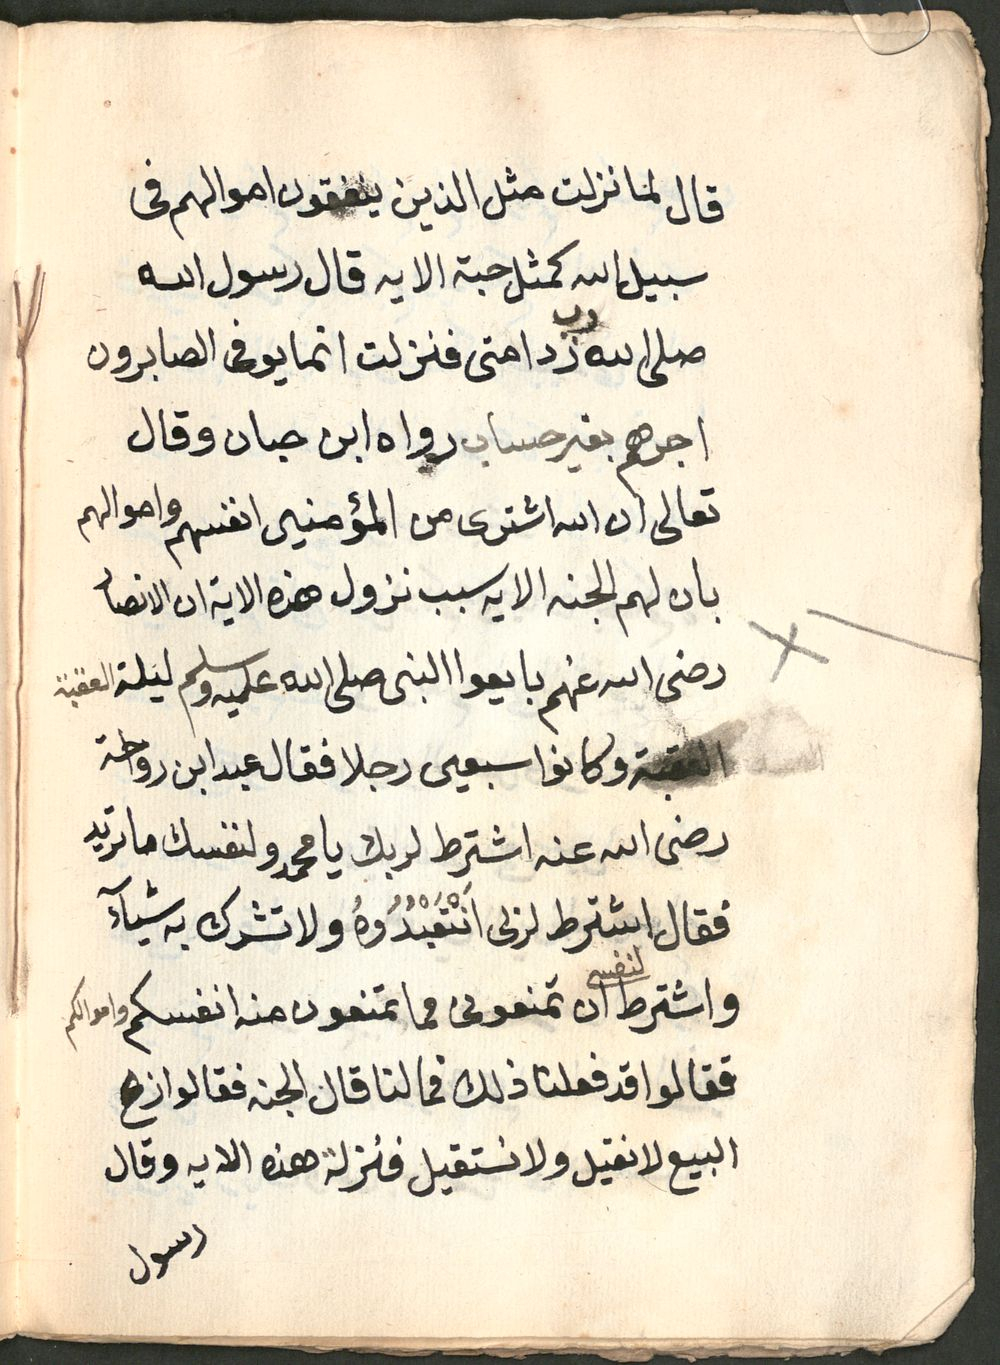 قال لما نزلت مثل الذين ينفقون اموالهم فى
سبيل الله كمثل حبة الايه قال رسول الله
صلى الله رب زد امتى فنزلت انما يوفى الصابرون
اجرهم بغير حساب رواه ابن حبان وقال
تعالى ان الله اشترى من المؤمنين انفسهم واموالهم
بان لهم الجنه الايه سبب نزول هذه الاية ان الانصار
رضى الله عنهم بايعوا النبى صلى الله عليه وسلم ليلة العقبة
العقبة وكانوا سبعين رجلا فقال عبد ابن رواحة
رضى الله عنه اشترط لربك يا محمد ولنفسك ما تريد
فقال اشترط لربى ان تعبدوه ولا تشرك به شيآء
واشترط لنفسى ان تمنعونى مما تمنعون منه انفسكم واموالكم
فقالوا قد فعلنا ذلك فمالنا قال الجنه فقالوا
البيع لا نقيل ولا نستقيل فنزلة هذه الايه وقال
رسول